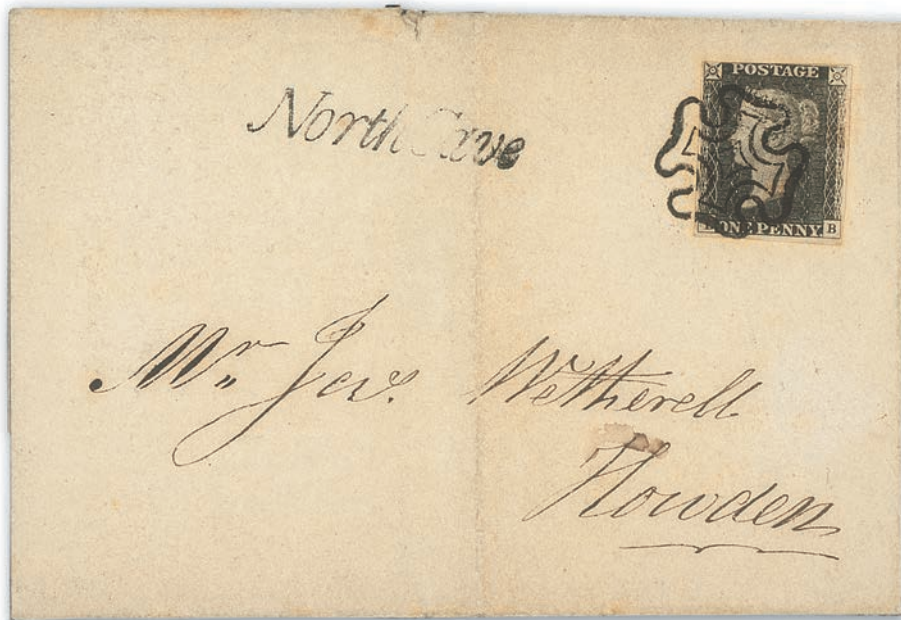 North Cave
POSTAGE
ONE PENNY B
Mr. Jas. Wetherell
Howden